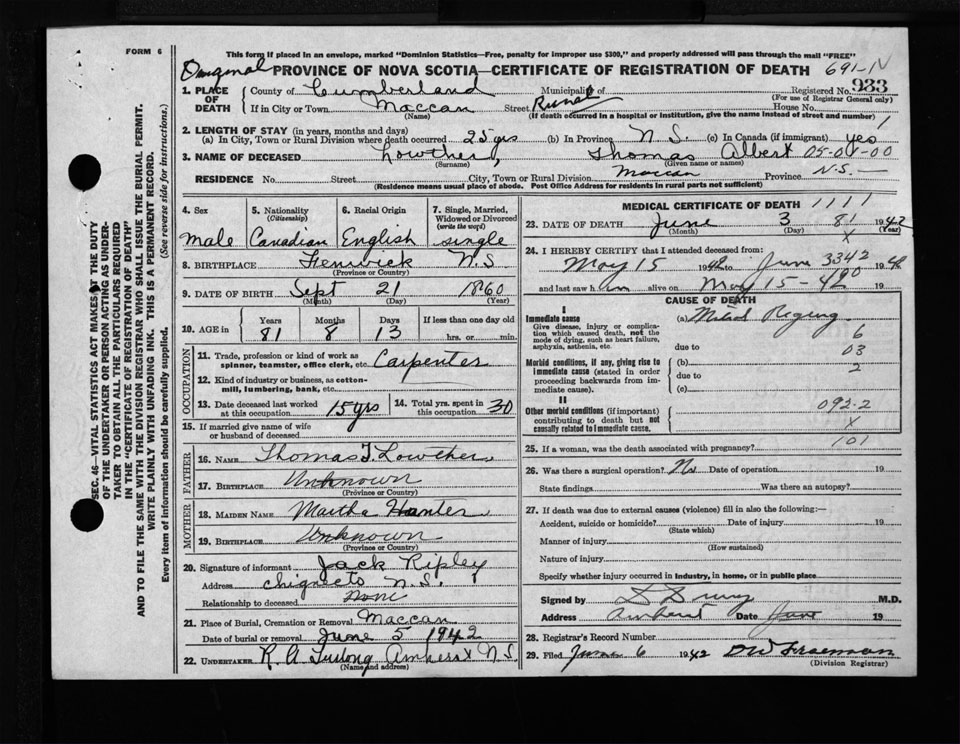 FORM 6
This form if placed in an envelope, marked "Dominion Statistics—Free, penalty for improper use $300," and properly addressed will pass through the mail "FREE"
Original PROVINCE OF NOVA SCOTIA—CERTIFICATE OF REGISTRATION OF DEATH 691-N
1. PLACE OF DEATH County of Cumberland Municipality of Registered No. 933
(For use of Registrar General only)
If in City or Town Maccan Street Rural
(Name) (If death occurred in a hospital or institution, give the name instead of street and number)
2. LENGTH OF STAY (in years, months and days) 1
(a) In City, Town or Rural Division where death occurred 25 yrs (b) In Province N.S. (c) In Canada (if immigrant) yes
3. NAME OF DECEASED Lowther, Thomas Albert 05-01-00
(Surname) (Given name or names)
RESIDENCE No. Street City, Town or Rural Division Maccan Province N.S.—
(Residence means usual place of abode. Post Office Address for residents in rural parts not sufficient)
4. Sex Male
5. Nationality (Citizenship) Canadian
6. Racial Origin English
7. Single, Married, Widowed or Divorced (write the word) single
8. BIRTHPLACE Fenwick N.S
(Province or Country)
9. DATE OF BIRTH Sept 21 1860
(Month) (Day) (Year)
10. AGE in Years Months Days If less than one day old
81 8 13 hrs. or min.
OCCUPATION
11. Trade, profession or kind of work as spinner, teamster, office clerk, etc. Carpenter
12. Kind of industry or business, as cotton-mill, lumbering, bank, etc.
13. Date deceased last worked at this occupation 15 yrs 14. Total yrs. spent in this occupation 30
15. If married give name of wife or husband of deceased
FATHER
16. NAME Thomas T. Lowther
17. BIRTHPLACE Unknown
(Province or Country)
MOTHER
18. MAIDEN NAME Martha Hunter
19. BIRTHPLACE Unknown
(Province or Country)
20. Signature of informant Jack Ripley
Address Chignecto N.S.
Relationship to deceased None
21. Place of Burial, Cremation or Removal Maccan
Date of burial or removal June 5 1942
22. UNDERTAKER R A Amherst N.S.
(Name and address)
MEDICAL CERTIFICATE OF DEATH 1111
23. DATE OF DEATH June 3 81 1942
(Month) (Day) (Year)
X
24. I HEREBY CERTIFY that I attended deceased from:
May 15 1942 to June 3342 1942
and last saw him alive on May 15-42 19
CAUSE OF DEATH
I
Immediate cause (a) Mitral Regurg
Give disease, injury or complication which caused death, not the mode of dying, such as heart failure, asphyxia, asthenia, etc.
due to 6
03
2
Morbid conditions, if any, giving rise to immediate cause (stated in order proceeding backwards from immediate cause).
(b)
due to
(c)
II
Other morbid conditions (if important) contributing to death but not causally related to immediate cause.
092-2
X
101
25. If a woman, was the death associated with pregnancy?
26. Was there a surgical operation? No Date of operation 19
State findings Was there an autopsy?
27. If death was due to external causes (violence) fill in also the following:—
Accident, suicide or homicide? Date of injury 19
(State which)
Manner of injury
(How sustained)
Nature of injury
Specify whether injury occurred in industry, in home, or in public place
Signed by M.D.
Address Amherst Date June 19
28. Registrar's Record Number
29. Filed June 6 1942
(Division Registrar)
SEC. 46—VITAL STATISTICS ACT MAKES IT THE DUTY
OF THE UNDERTAKER OR PERSON ACTING AS UNDERTAKER TO OBTAIN ALL THE PARTICULARS REQUIRED
IN THE "CERTIFICATE OF REGISTRATION OF DEATH"
AND TO FILE THE SAME WITH THE DIVISION REGISTRAR WHO SHALL ISSUE THE BURIAL PERMIT.
WRITE PLAINLY WITH UNFADING INK. THIS IS A PERMANENT RECORD.
Every item of information should be carefully supplied. (See reverse side for instructions.)